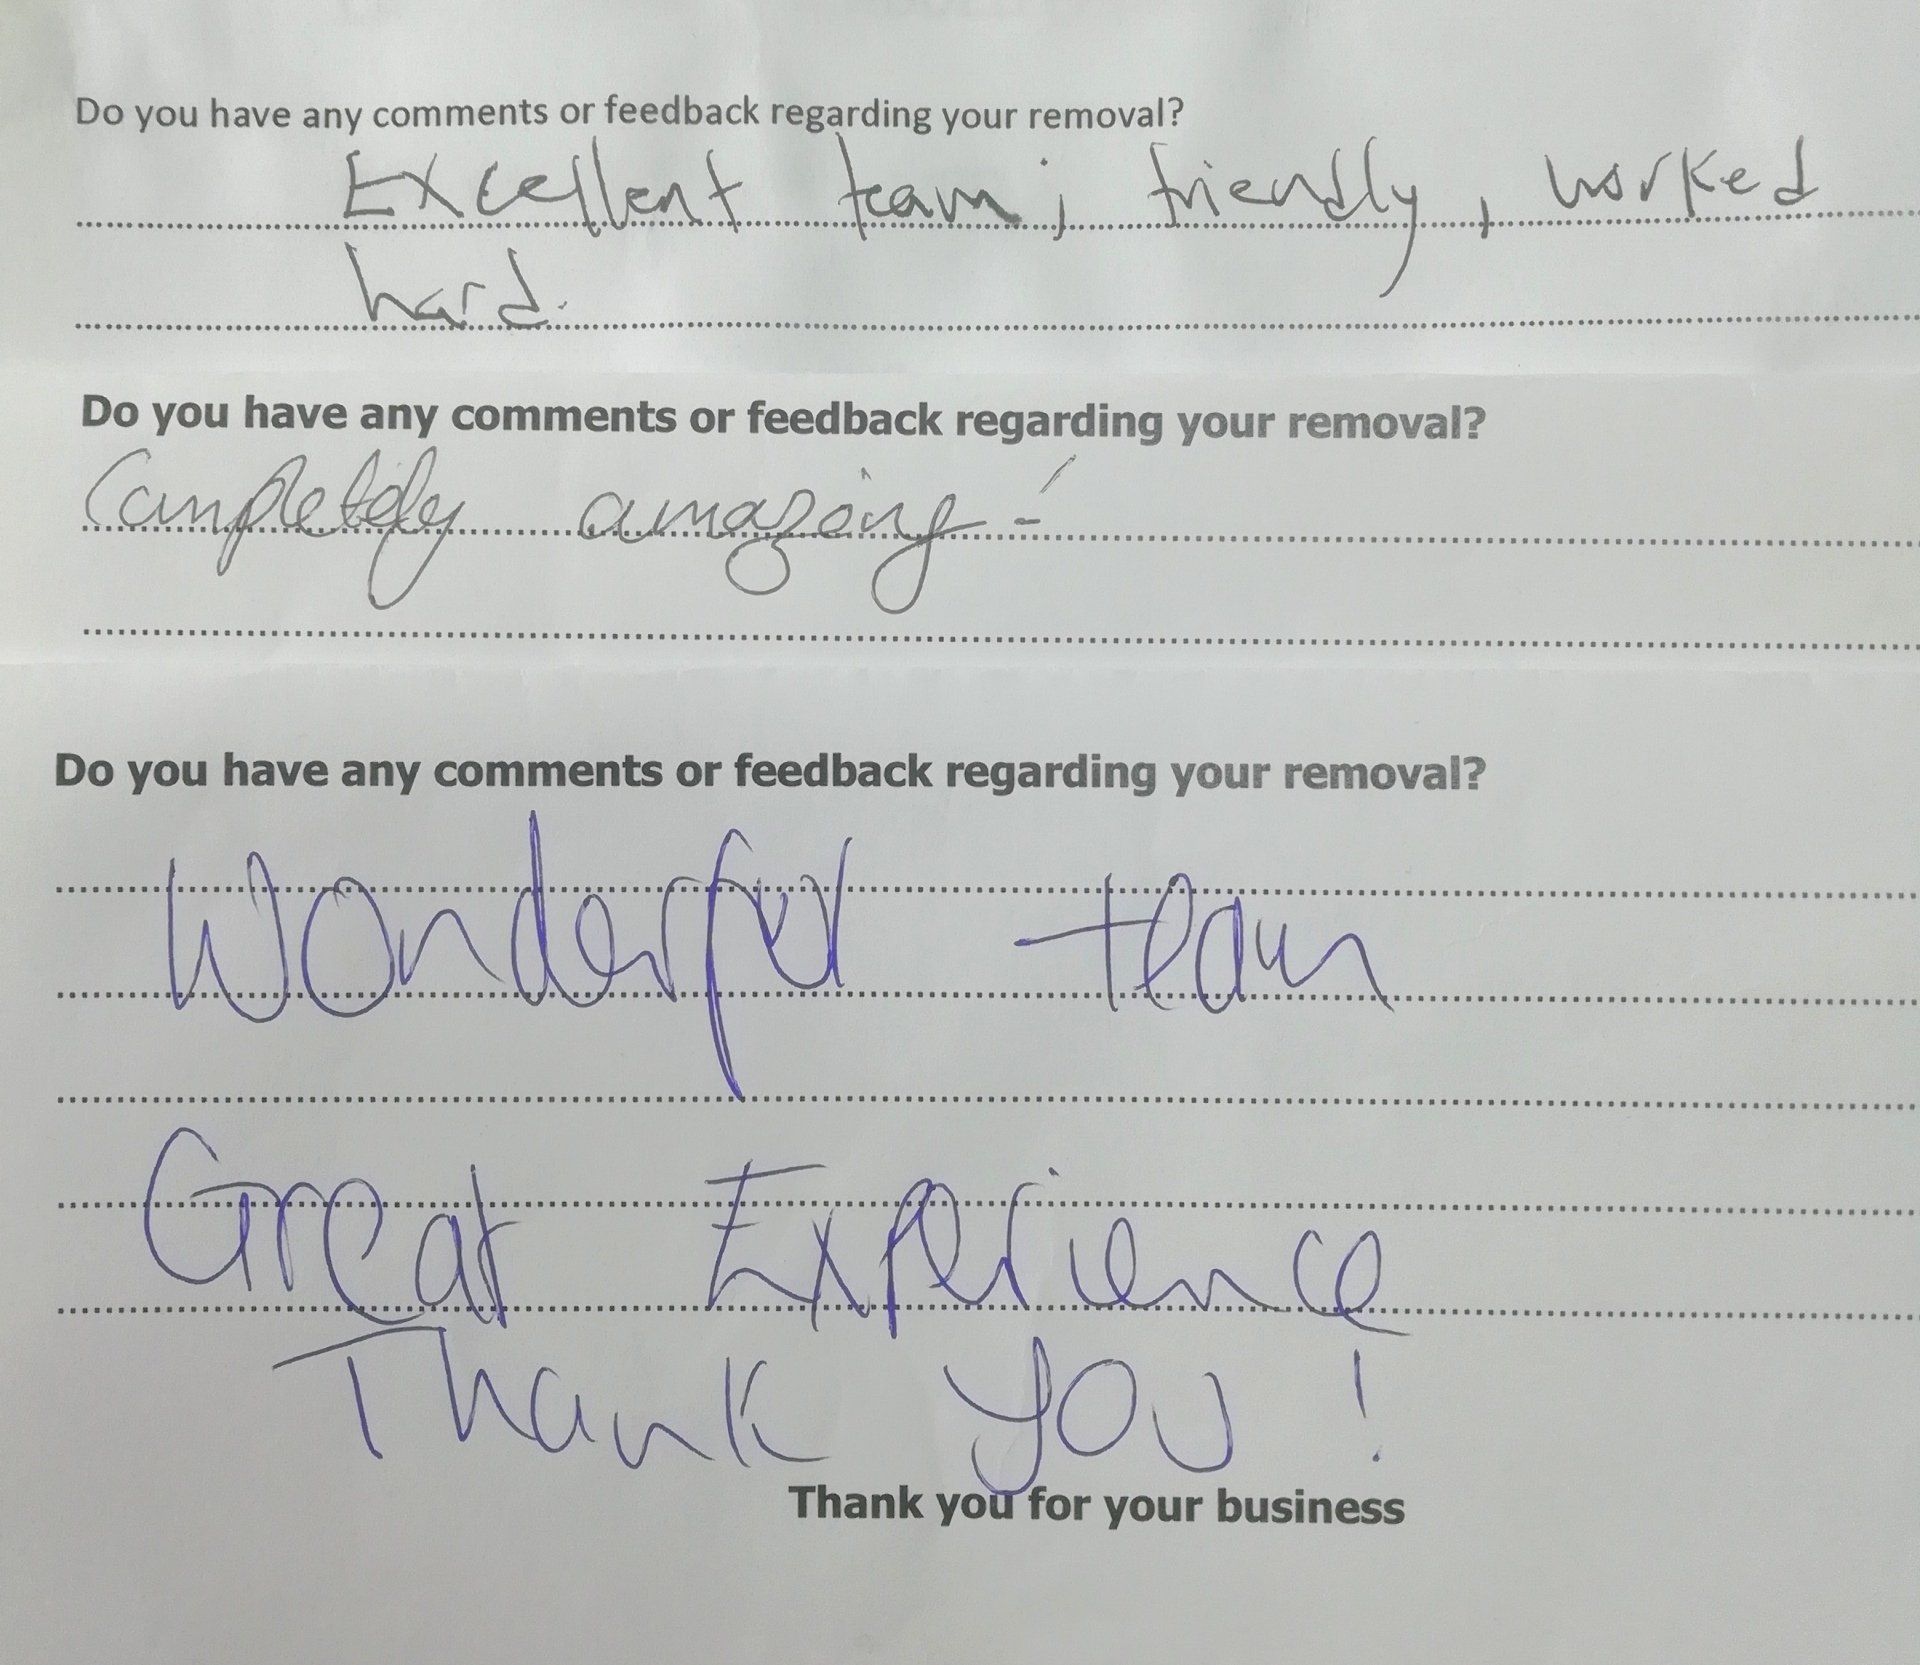 Do you have any comments or feedback regarding your removal?
Excellent team; friendly, worked
hard.
Do you have any comments or feedback regarding your removal?
Completely amazing!
Do you have any comments or feedback regarding your removal?
Wonderful team
Great Experience
Thank you!
Thank you for your business